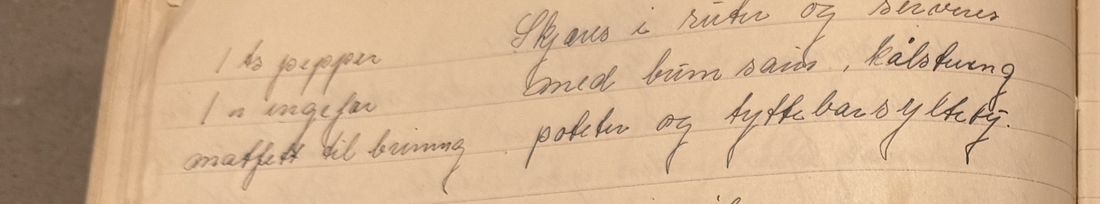 1 ts pepper
1 " ingefær
matfett til bruning
Skjæres i ruter og serveres
med brun saus, kålstuing
poteter og tyttebærsyltetøy.